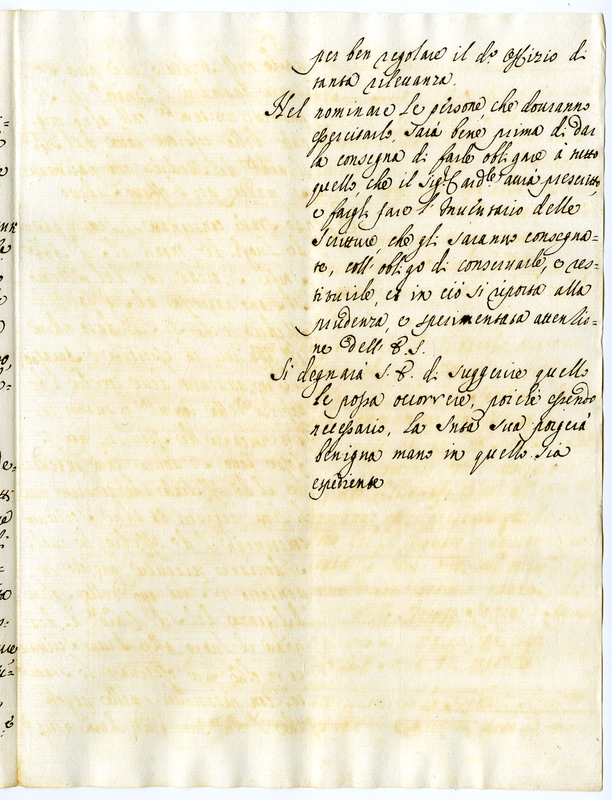 per ben regolare il d.º Offizio di
tanta rilevanza.
Nel nominare le persone, che dovranno
esercitarlo, sarà bene prima di dar
la consegna di farle obligare à tutto
quello, che il Sig.r Card.le avrà prescritto,
e fargli fare l'Inventario delle
Scritture, che gli saranno consegna=
te, coll'obligo di conservarle, e res=
tituirle, et in ciò si riporta alla
prudenza, e sperimentata attenzio=
ne dell'E.S.
Si degnarà S.E. di suggerire quello
le possa occorrere, poiche essendo
necessario, la Sntà Sua porgerà
benigna mano in quello sia
espediente